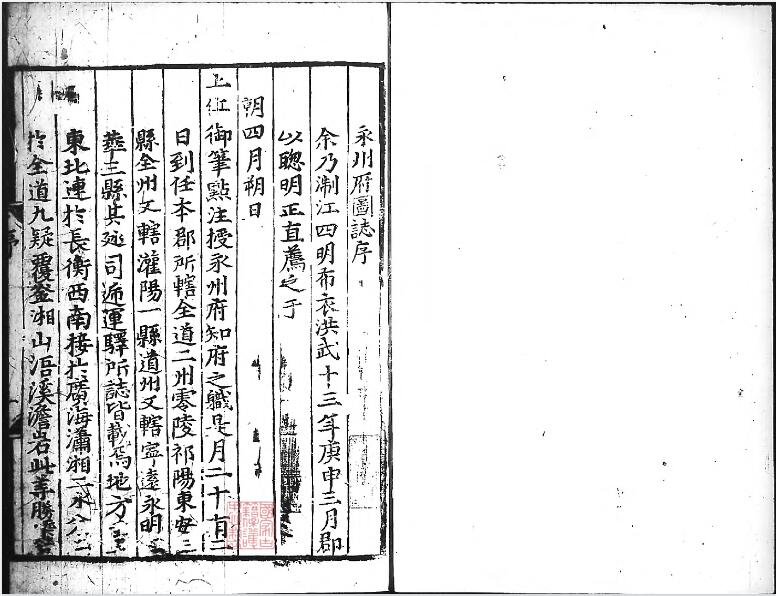 永州府圖誌序
余乃淛江四明布衣洪武十三年庚申三月郡
以聦明正直薦之于
朝四月朔日
上 御筆㸃注授永州府知府之職是月二十有二
日到任本郡所轄全道二州零陵祁陽東安三
縣全州又轄灌陽一縣道州又轄寧遠永明
華三縣其廵司逓運驛所誌皆載焉地方
東北連扵長衡西南接扵廣海瀟湘二水分
扵全道九疑覆釡湘山浯溪澹岩此等勝
序